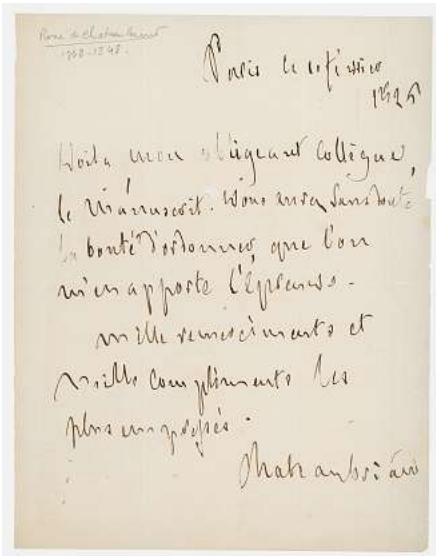 René de Chateaubriand
1768-1848.
Paris le 10 février
1826
Voilà mon obligeant collègue,
le manuscrit. Vous aurez sans doute
la bonté d'ordonner que l'on
m'en apporte l'épreuve.
mille remerciments et
mille compliments les
plus empressés.
Chateaubriand